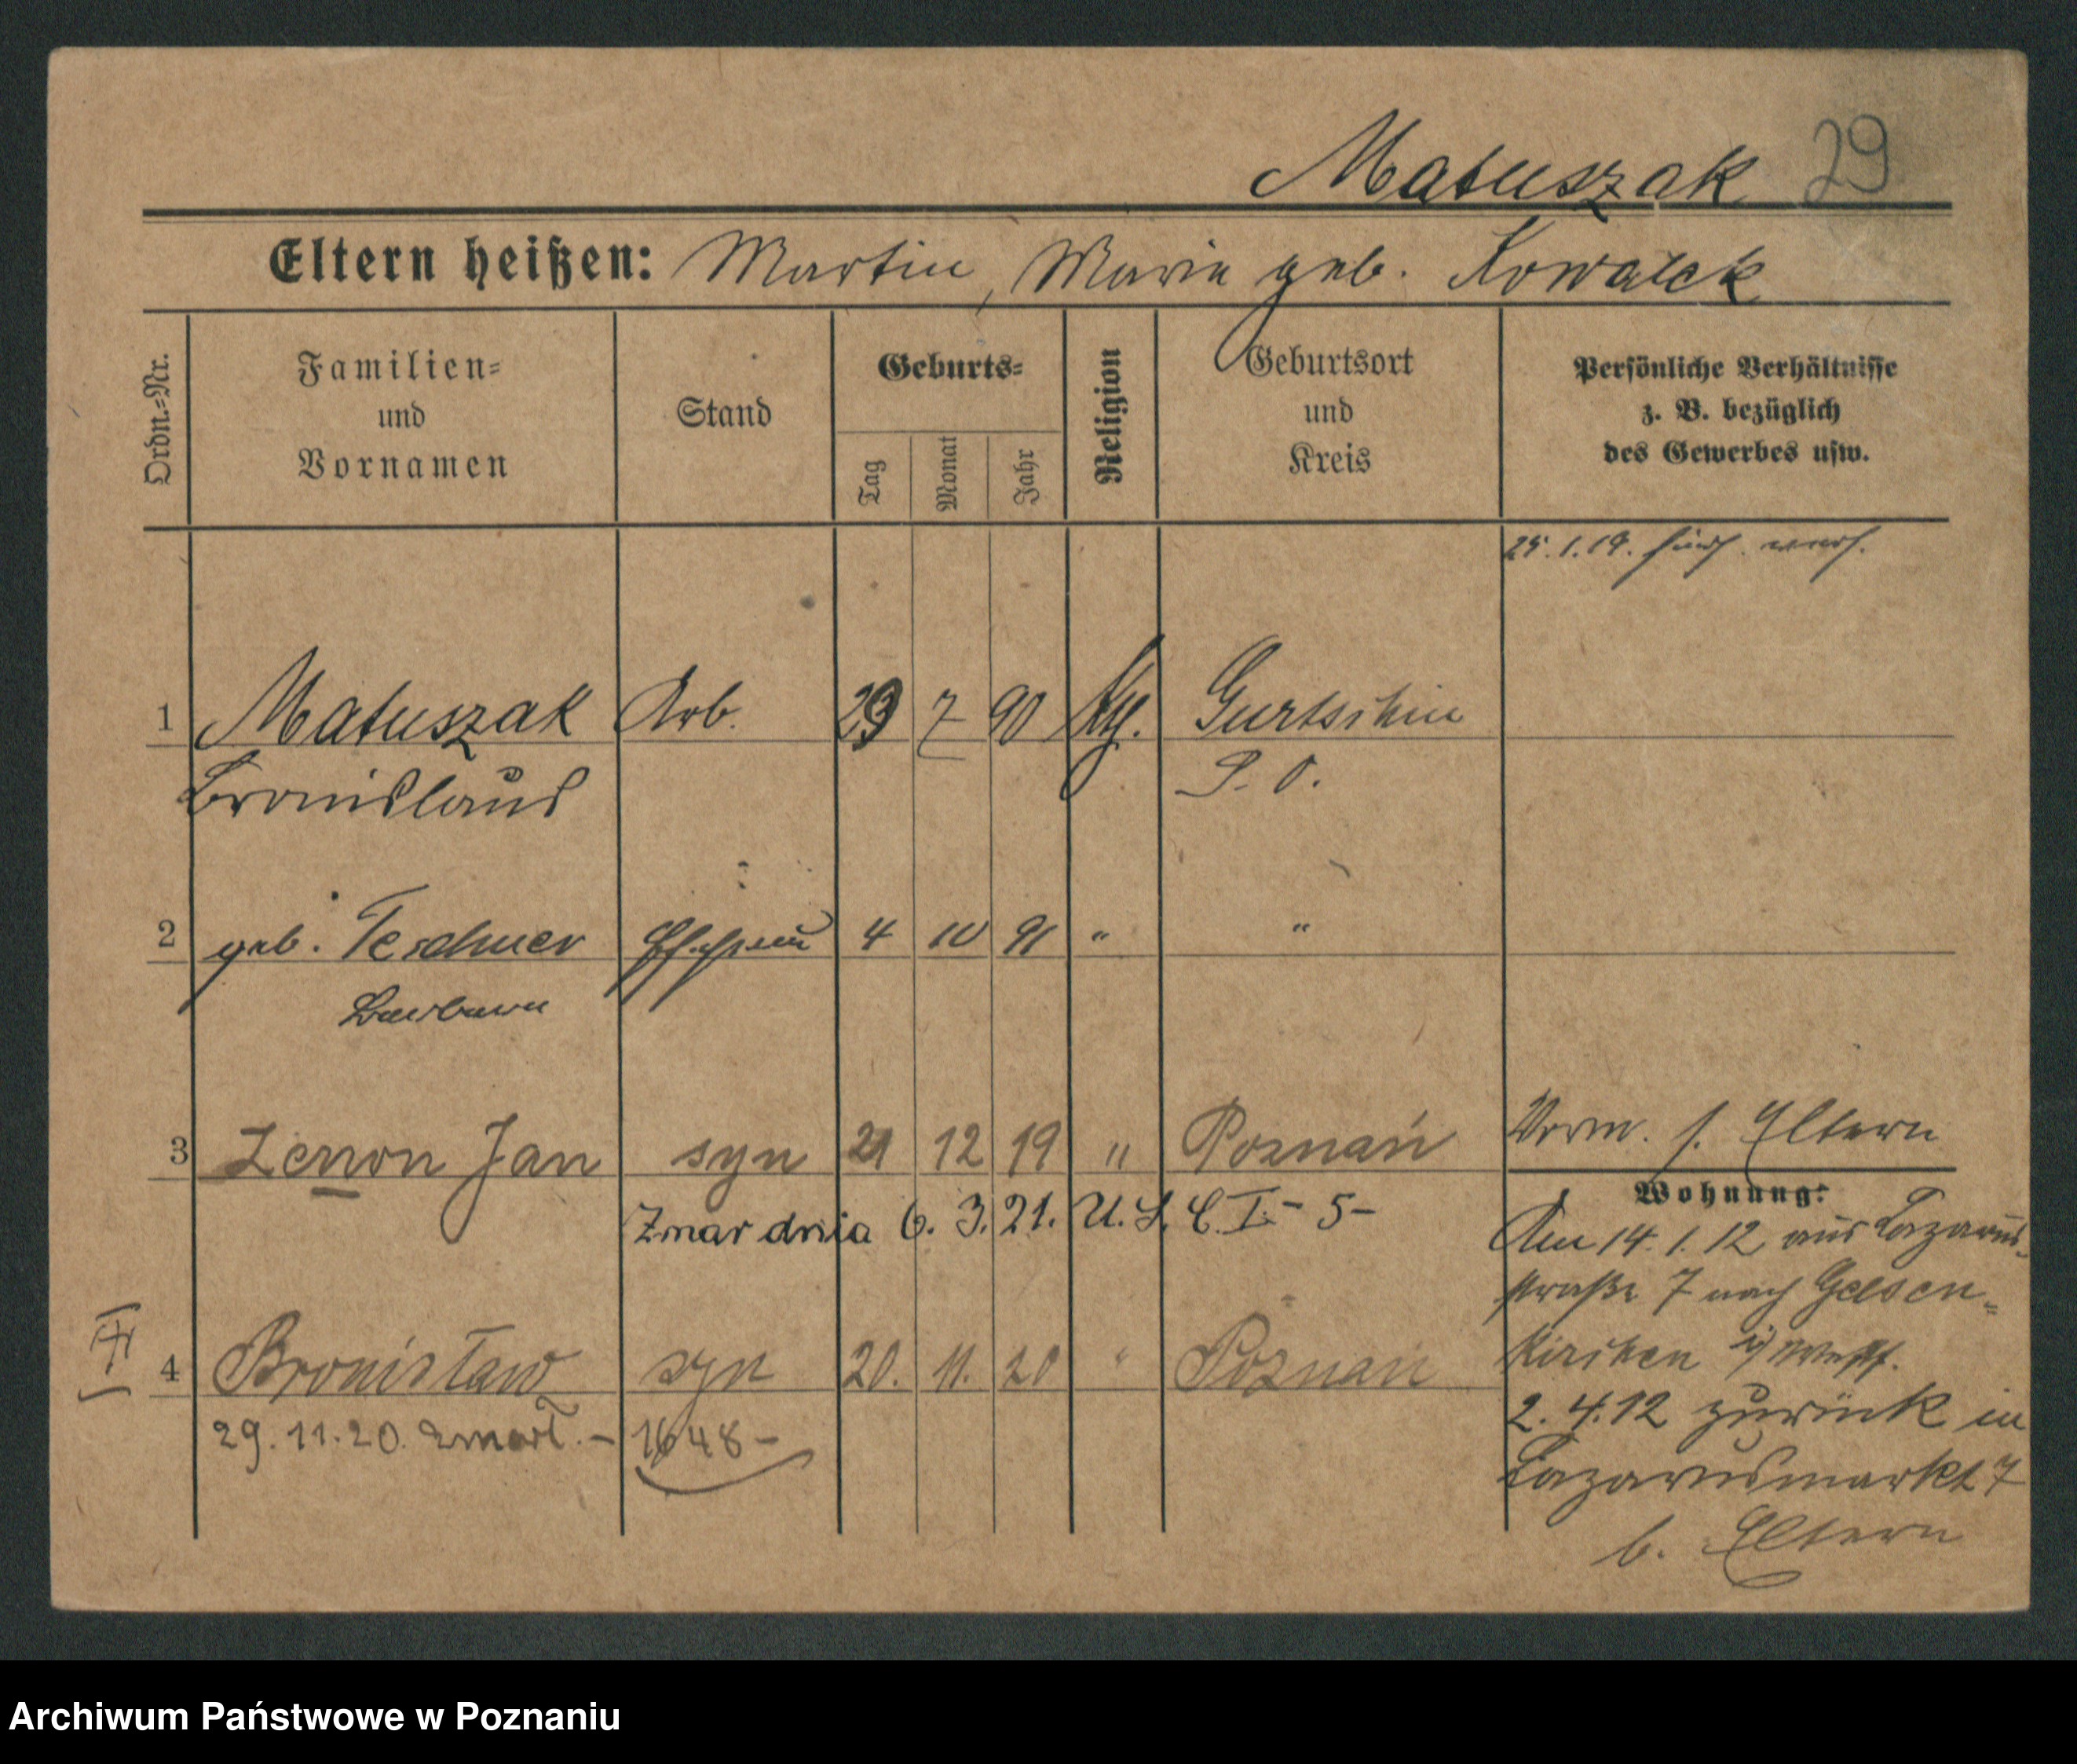 Matuszak 29
Eltern heißen: Martin, Marie geb. Kowalek
Ordn.-Nr.
Familien-
und
Vornamen
Stand
Geburts-
Tag
Monat
Jahr
Religion
Geburtsort
und
Kreis
Persönliche Verhältnisse
z. B. bezüglich
des Gewerbes usw.
25.1.19.
1 Matuszak Arb. 23 7 90 Kth. Gurtschin
Bronislaus P. O.
2 geb. Teschner Ehefrau 4 10 91 " "
Barbara
3 Zenon Jan syn 21 12 19 " Poznań
Zmar dnia 6. 3. 21. U. S. C. I. - 5 -
4 Bronisław syn 20. 11. 20 " Poznań
29. 11. 20. zmarł. - 1648 -
Verm. s. Eltern
Wohnung:
Am 14. 1. 12 aus Lazarus-
straße 7 nach Gelsen-
kirchen i/ Westf.
2. 4. 12 zurück in
Lazarusmarkt 7
b. Eltern
Archiwum Państwowe w Poznaniu